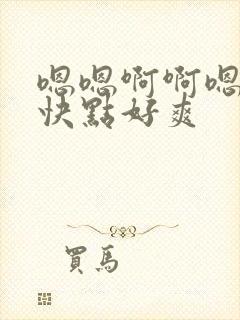 嗯嗯啊啊嗯
快點好爽
買馬